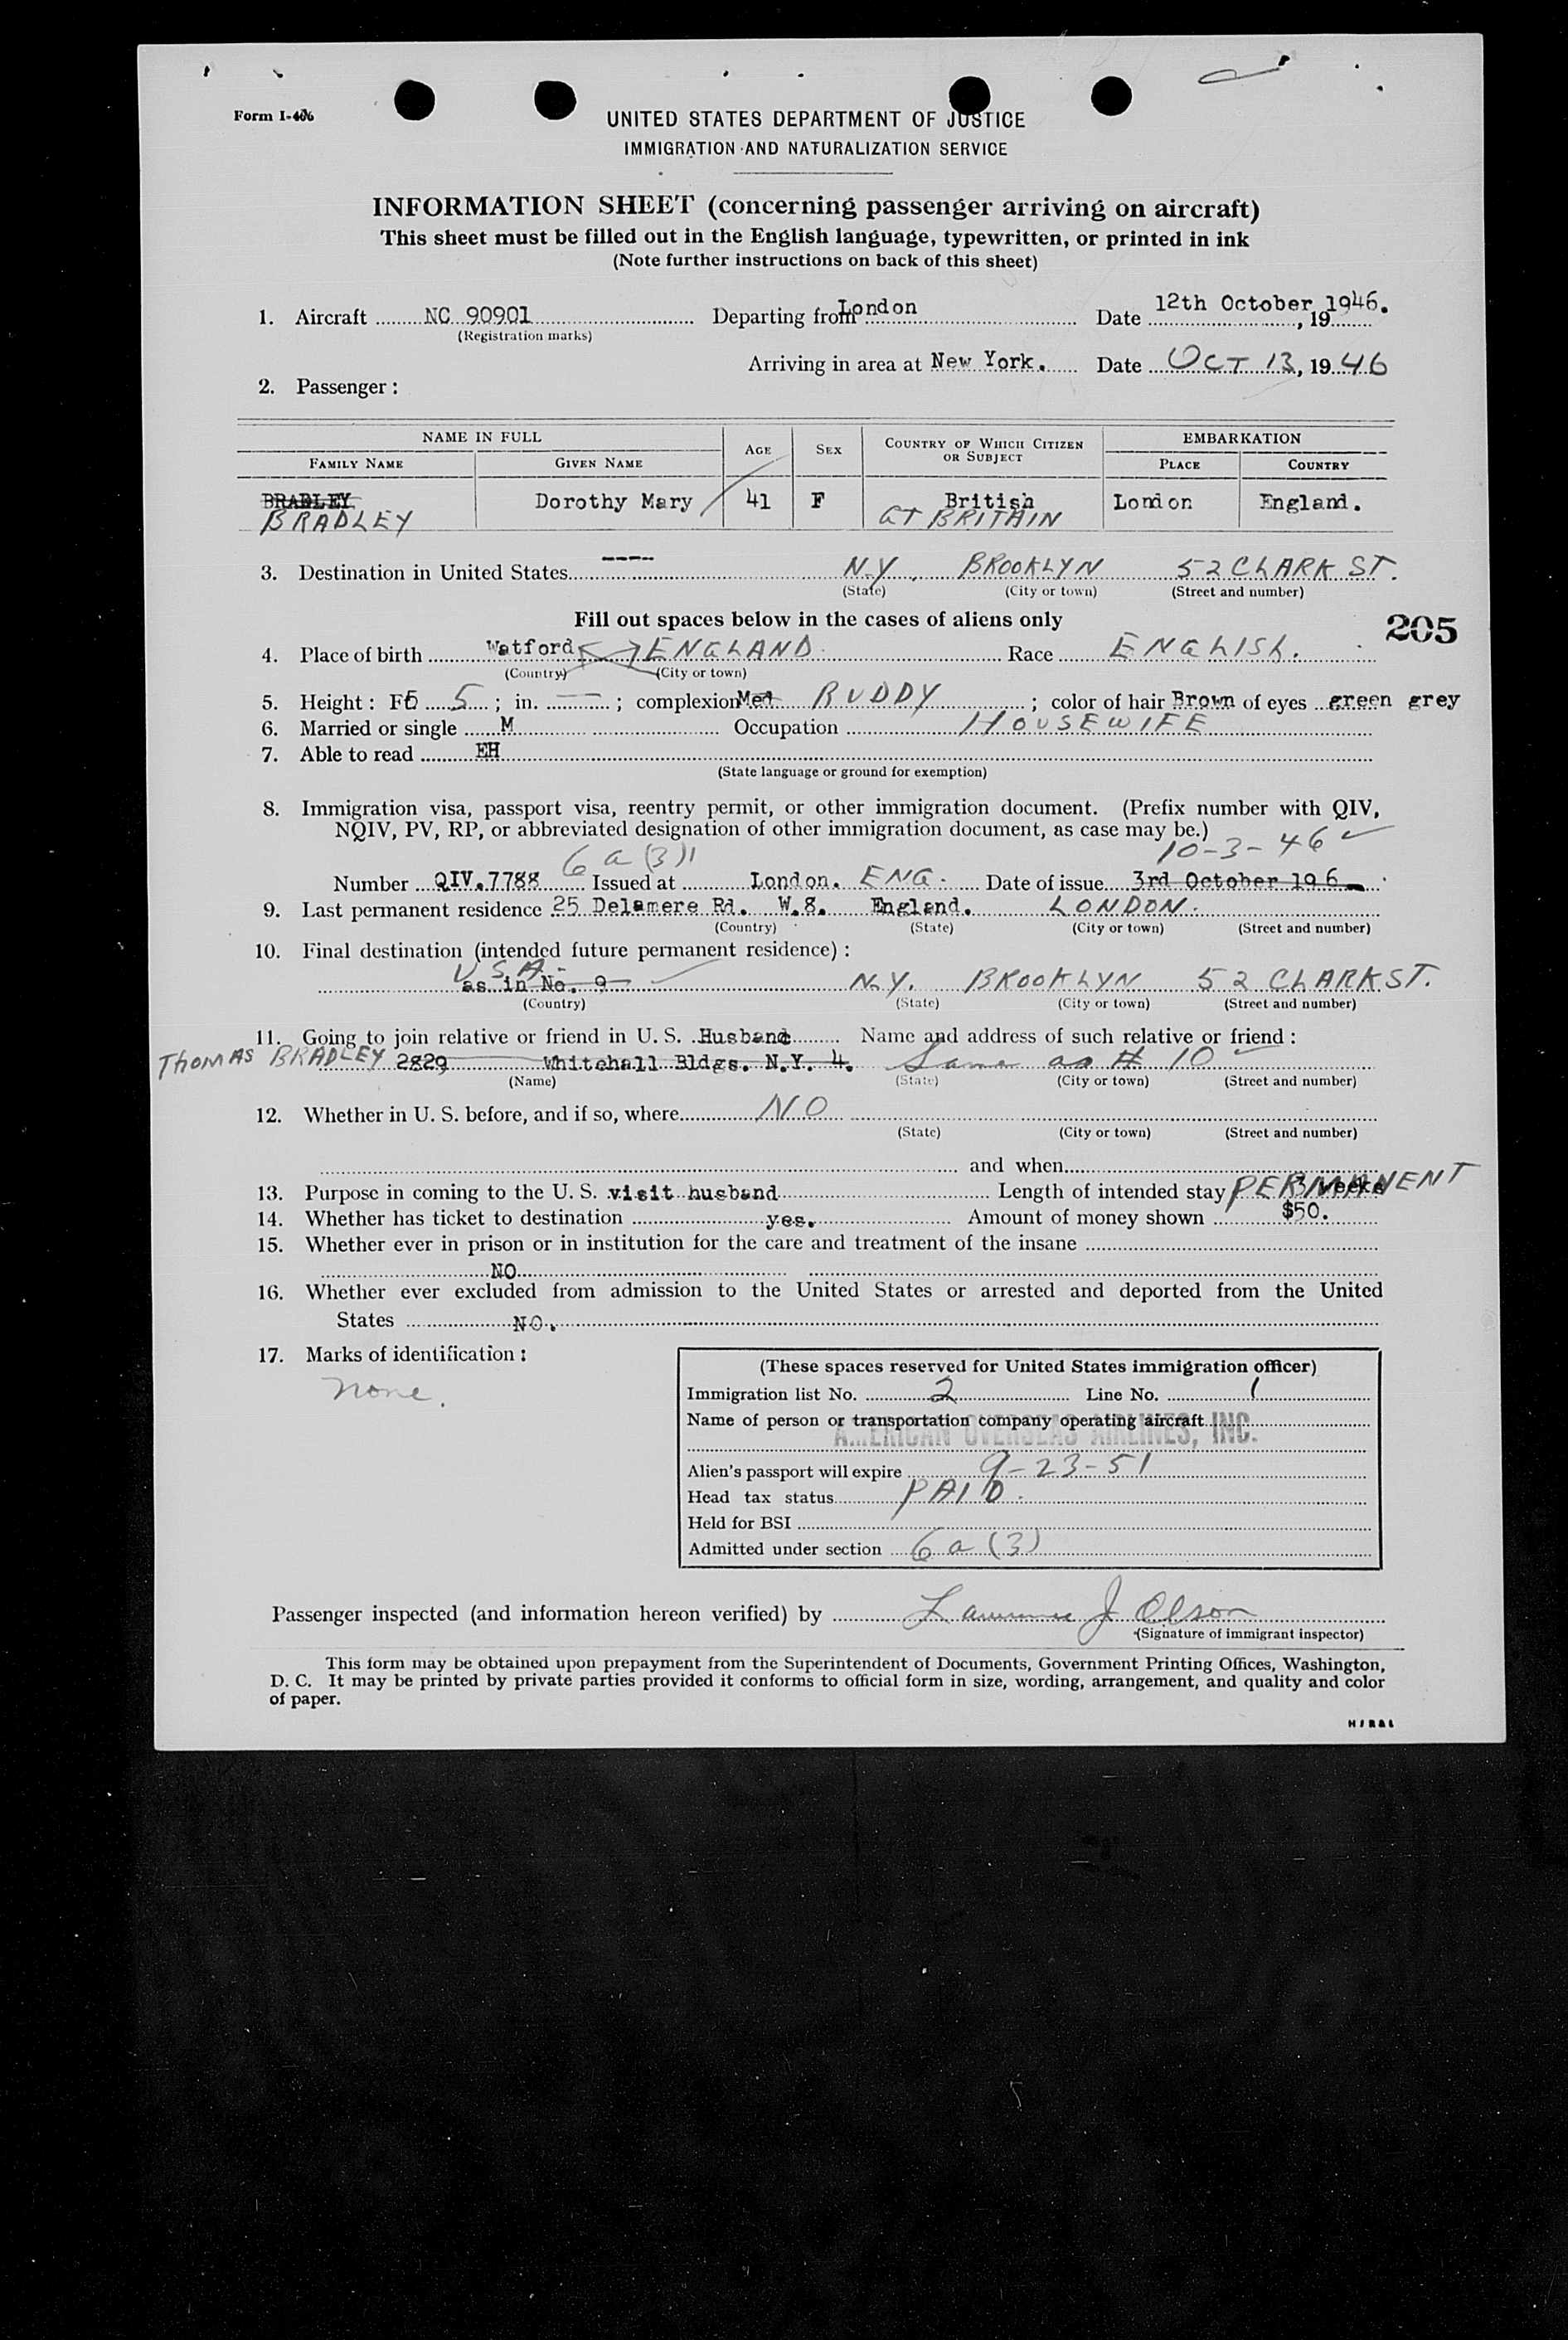 Form I-466
UNITED STATES DEPARTMENT OF JUSTICE
IMMIGRATION AND NATURALIZATION SERVICE
INFORMATION SHEET (concerning passenger arriving on aircraft)
This sheet must be filled out in the English language, typewritten, or printed in ink
(Note further instructions on back of this sheet)
1. Aircraft NC 90901 Departing from London Date 12th October, 1946.
(Registration marks)
Arriving in area at New York. Date OCT 13, 1946
2. Passenger:
NAME IN FULL AGE SEX COUNTRY OF WHICH CITIZEN OR SUBJECT EMBARKATION
FAMILY NAME GIVEN NAME PLACE COUNTRY
BRADLEY Dorothy Mary 41 F British London England.
BRADLEY GT BRITAIN
3. Destination in United States ---- N.Y. BROOKLYN 52 CLARK ST.
(State) (City or town) (Street and number)
Fill out spaces below in the cases of aliens only
205
4. Place of birth Watford ENGLAND Race ENGLISH.
(Country) (City or town)
5. Height: Ft 5 5; in. ; complexion Med RUDDY; color of hair Brown of eyes green grey
6. Married or single M Occupation HOUSEWIFE
7. Able to read EH
(State language or ground for exemption)
8. Immigration visa, passport visa, reentry permit, or other immigration document. (Prefix number with QIV,
NQIV, PV, RP, or abbreviated designation of other immigration document, as case may be.)
6 a (3) 10-3-46
Number QIV.7788 Issued at London. ENG. Date of issue 3rd October 19 6
9. Last permanent residence 25 Delamere Rd. W.8. England. LONDON.
(Country) (State) (City or town) (Street and number)
10. Final destination (intended future permanent residence):
U.S.A.
as in No. 9 N.Y. BROOKLYN 52 CLARK ST.
(Country) (State) (City or town) (Street and number)
11. Going to join relative or friend in U. S. Husband Name and address of such relative or friend:
THOMAS BRADLEY 2829 Whitehall Bldgs. N.Y. 4. Same as # 10
(Name) (State) (City or town) (Street and number)
12. Whether in U. S. before, and if so, where NO
(State) (City or town) (Street and number)
and when
13. Purpose in coming to the U. S. visit husband Length of intended stay PERMANENT weeks
14. Whether has ticket to destination yes. Amount of money shown $50.
15. Whether ever in prison or in institution for the care and treatment of the insane
NO
16. Whether ever excluded from admission to the United States or arrested and deported from the United
States NO.
17. Marks of identification:
none.
(These spaces reserved for United States immigration officer)
Immigration list No. 2 Line No. 1
Name of person or transportation company operating aircraft
AMERICAN OVERSEAS AIRLINES, INC.
Alien's passport will expire 9-23-51
Head tax status PAID.
Held for BSI
Admitted under section 6 a (3)
Passenger inspected (and information hereon verified) by Lawrence J Olson
(Signature of immigrant inspector)
This form may be obtained upon prepayment from the Superintendent of Documents, Government Printing Offices, Washington,
D. C. It may be printed by private parties provided it conforms to official form in size, wording, arrangement, and quality and color
of paper.